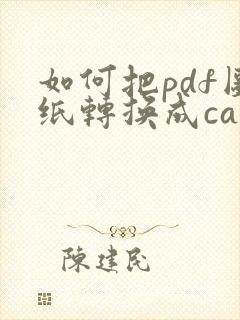 如何把pdf
纸轉换成ca
陳建民